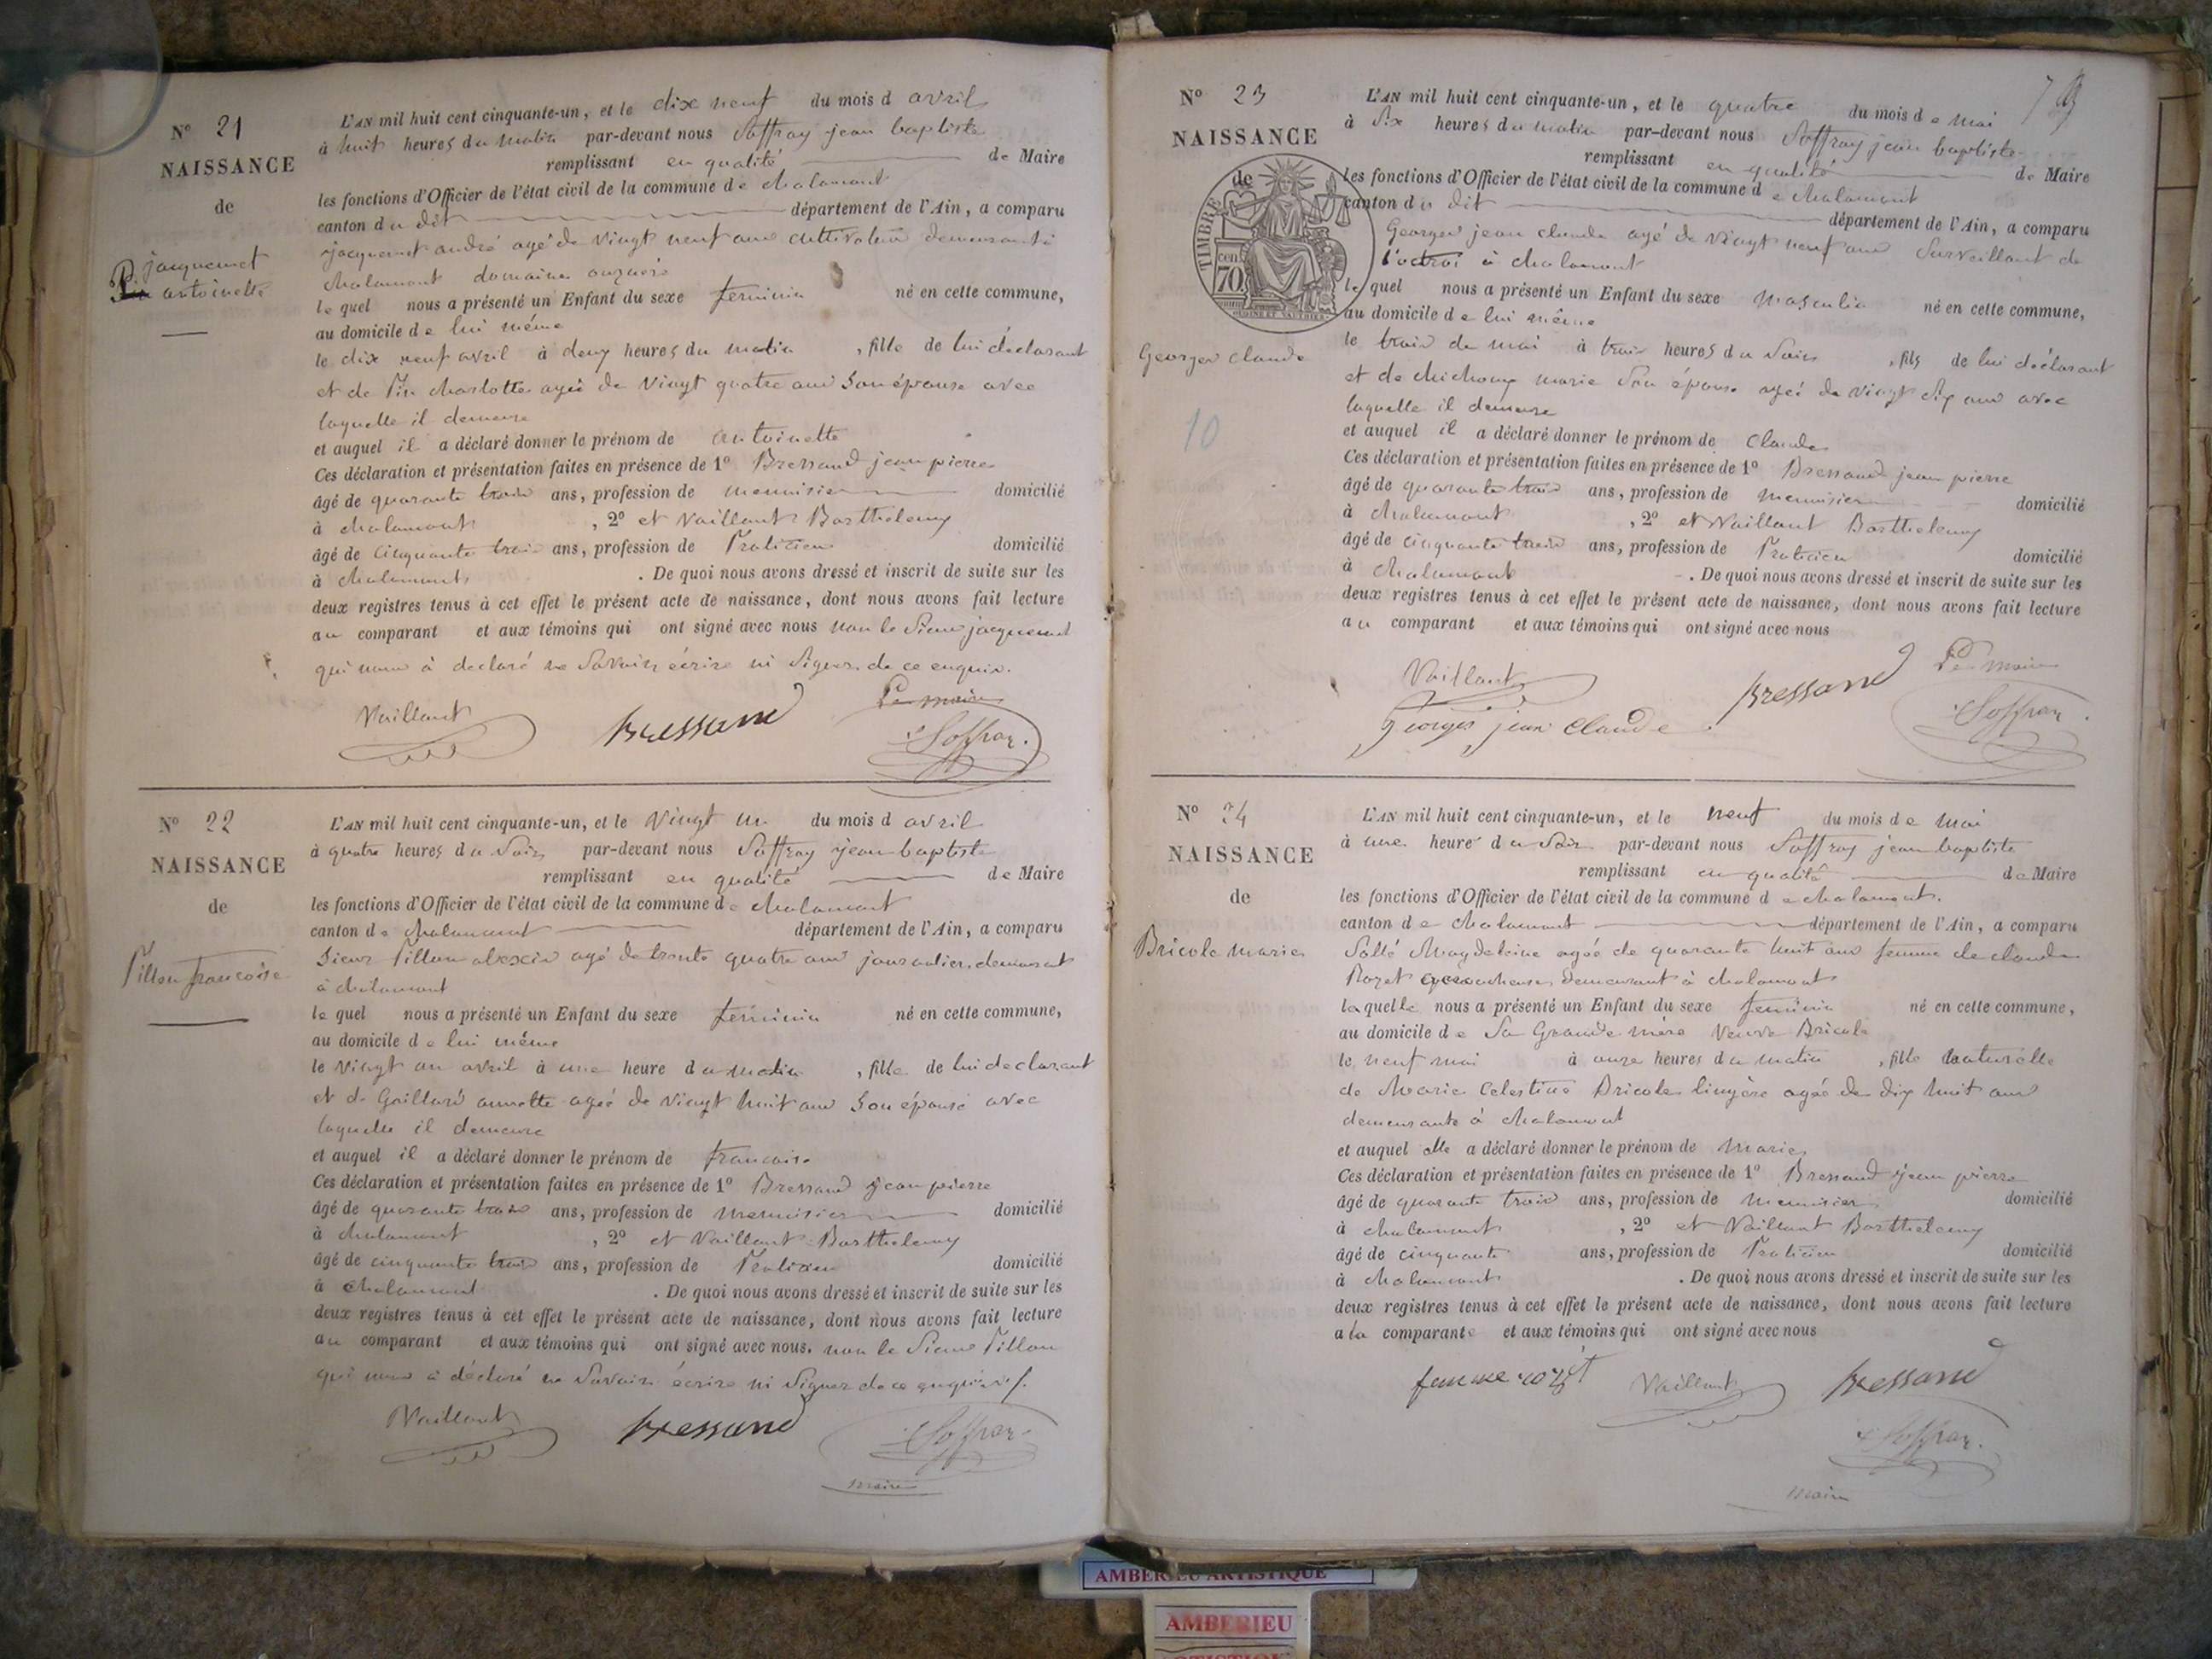 N° 21
NAISSANCE
de
jacquemet
antoinette
L'AN mil huit cent cinquante-un, et le dix neuf du mois d avril
à huit heures du matin par-devant nous Soffray jean baptiste
remplissant en qualité de Maire
les fonctions d'Officier de l'état civil de la commune de chalamont
canton du dit département de l'Ain, a comparu
jacquemet andré agé de vingt neuf ans cultivateur demeurant à
chalamont domaine
le quel nous a présenté un Enfant du sexe feminin né en cette commune,
au domicile de lui même
le dix neuf avril à deux heures du matin, fille de lui déclarant
et de Pin charlotte agée de vingt quatre ans son épouse avec
laquelle il demeure
et auquel il a déclaré donner le prénom de antoinette
Ces déclaration et présentation faites en présence de 1° Bressand jean pierre
âgé de quarante trois ans, profession de menuisier domicilié
à chalamont, 2° et Vaillant Barthelemy
âgé de cinquante trois ans, profession de Praticien domicilié
à chalamont. De quoi nous avons dressé et inscrit de suite sur les
deux registres tenus à cet effet le présent acte de naissance, dont nous avons fait lecture
au comparant et aux témoins qui ont signé avec nous non le Sieur jacquemet
qui nous à declaré ne Savoir écrire ni Signer de ce enquis.
Vaillant Bressand Le maire
Soffray
N° 22
NAISSANCE
de
Tillon francoise
L'AN mil huit cent cinquante-un, et le Vingt un du mois d avril
à quatre heures du Soir par-devant nous Soffray jean baptiste
remplissant en qualité de Maire
les fonctions d'Officier de l'état civil de la commune de chalamont
canton de chalamont département de l'Ain, a comparu
Sieur Tillon alexis agé de trente quatre ans journalier demeurant
à chalamont
le quel nous a présenté un Enfant du sexe feminin né en cette commune,
au domicile de lui même
le vingt un avril à une heure du matin, fille de lui declarant
et de Gaillard annette agée de vingt huit ans son épouse avec
laquelle il demeure
et auquel il a déclaré donner le prénom de francoise
Ces déclaration et présentation faites en présence de 1° Bressand jean pierre
âgé de quarante trois ans, profession de menuisier domicilié
à chalamont, 2° et Vaillant Barthelemy
âgé de cinquante trois ans, profession de Praticien domicilié
à chalamont. De quoi nous avons dressé et inscrit de suite sur les
deux registres tenus à cet effet le présent acte de naissance, dont nous avons fait lecture
au comparant et aux témoins qui ont signé avec nous. non le Sieur Tillon
qui nous à déclaré ne Savoir écrire ni Signer de ce enquis
Vaillant Bressand Soffray
maire
N° 23
NAISSANCE
de
TIMBRE
cen
70
Georges Claude
10
L'AN mil huit cent cinquante-un, et le quatre du mois de mai
à Six heures du matin par-devant nous Soffray jean baptiste
remplissant en qualité de Maire
les fonctions d'Officier de l'état civil de la commune de chalamont
canton du dit département de l'Ain, a comparu
Georges jean claude agé de vingt neuf ans Surveillant de
l'octroi à chalamont
le quel nous a présenté un Enfant du sexe masculin né en cette commune,
au domicile de lui même
le trois de mai à trois heures du Soir, fils de lui déclarant
et de chichoux marie Son épouse agée de vingt six ans avec
laquelle il demeure
et auquel il a déclaré donner le prénom de Claude
Ces déclaration et présentation faites en présence de 1° Bressand jean pierre
âgé de quarante trois ans, profession de menuisier domicilié
à chalamont, 2° et Vaillant Barthelemy
âgé de cinquante trois ans, profession de Praticien domicilié
à chalamont. De quoi nous avons dressé et inscrit de suite sur les
deux registres tenus à cet effet le présent acte de naissance, dont nous avons fait lecture
au comparant et aux témoins qui ont signé avec nous
Vaillant Bressand Le maire
Georges jean Claude Soffray
N° 24
NAISSANCE
de
Bricole marie
L'AN mil huit cent cinquante-un, et le neuf du mois de mai
à une heure du Soir par-devant nous Soffray jean baptiste
remplissant en qualité de Maire
les fonctions d'Officier de l'état civil de la commune de chalamont.
canton de chalamont département de l'Ain, a comparu
Sallé Magdeleine agée de quarante huit ans femme de claude
Rozet accoucheuse demeurant à chalamont
laquelle nous a présenté un Enfant du sexe feminin né en cette commune,
au domicile de Sa Grande mère Veuve Bricole
le neuf mai à onze heures du matin, fille naturelle
de Marie Celestine Bricole lingère agée de dix huit ans
demeurante à chalamont
et auquel elle a déclaré donner le prénom de marie
Ces déclaration et présentation faites en présence de 1° Bressand jean pierre
âgé de quarante trois ans, profession de menuisier domicilié
à chalamont, 2° et Vaillant Barthelemy
âgé de cinquante ans, profession de Praticien domicilié
à chalamont. De quoi nous avons dressé et inscrit de suite sur les
deux registres tenus à cet effet le présent acte de naissance, dont nous avons fait lecture
a la comparante et aux témoins qui ont signé avec nous
femme rozet Vaillant Bressand
Soffray
maire
AMBERIEU ARTISTIQUE
AMBERIEU